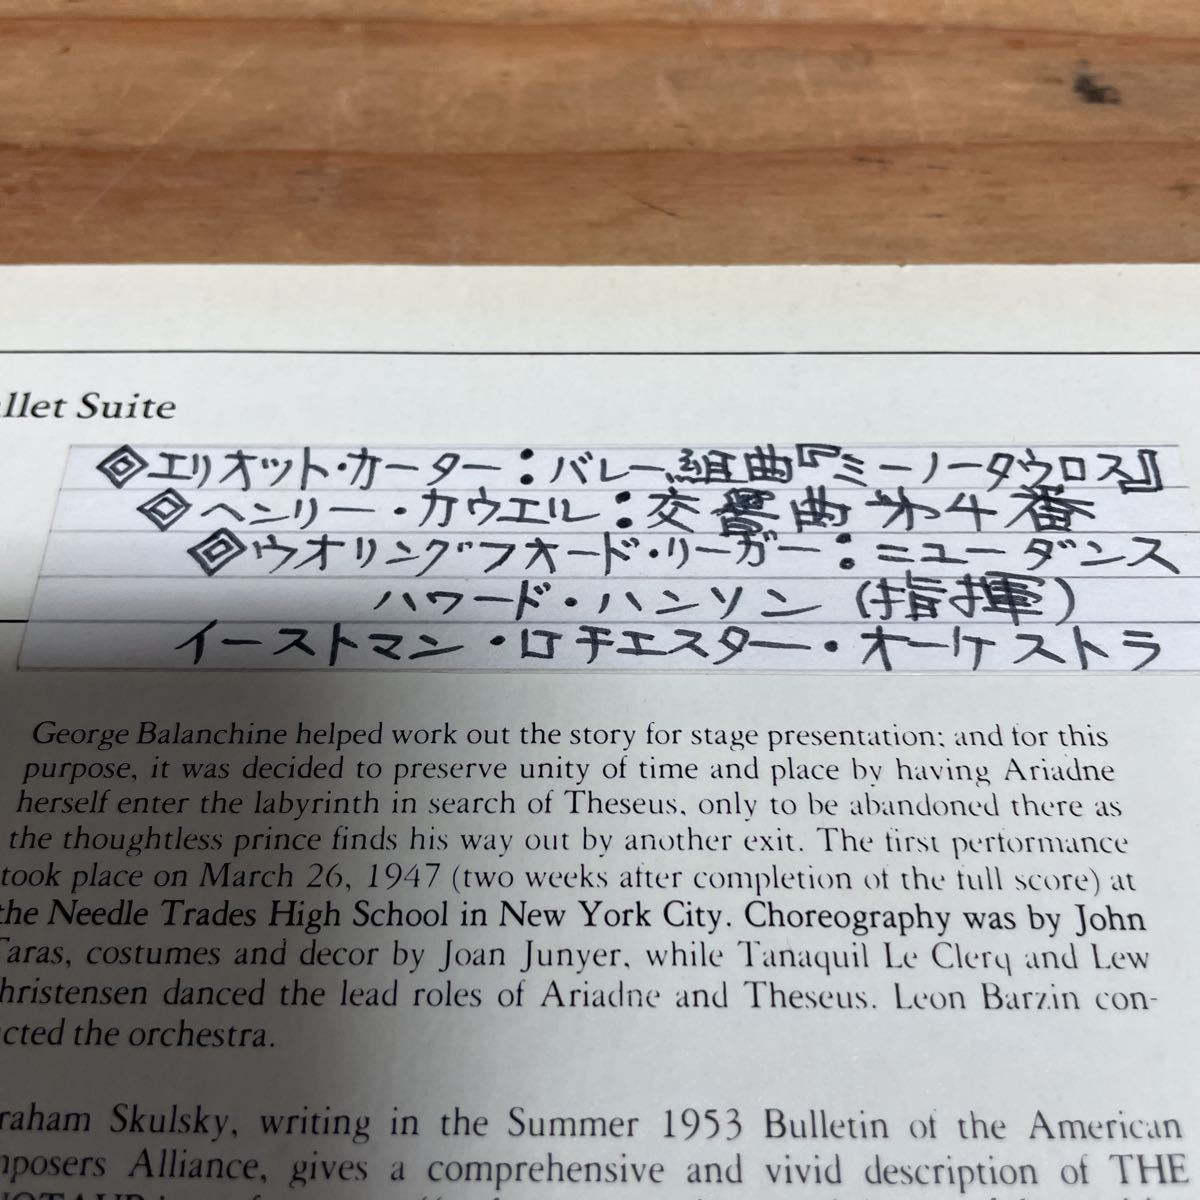 llet Suite
◈エリオット・カーター：バレー組曲『ミーノータウロス』
◈ヘンリー・カウエル：交響曲第4番
◈ウオリングフォード・リーガー：ニューダンス
ハワード・ハンソン（指揮）
イーストマン・ロチェスター・オーケストラ
George Balanchine helped work out the story for stage presentation; and for this
purpose, it was decided to preserve unity of time and place by having Ariadne
herself enter the labyrinth in search of Theseus, only to be abandoned there as
the thoughtless prince finds his way out by another exit. The first performance
took place on March 26, 1947 (two weeks after completion of the full score) at
the Needle Trades High School in New York City. Choreography was by John
Taras, costumes and decor by Joan Junyer, while Tanaquil Le Clerq and Lew
hristensen danced the lead roles of Ariadne and Theseus. Leon Barzin con-
cted the orchestra.
raham Skulsky, writing in the Summer 1953 Bulletin of the American
mposers Alliance, gives a comprehensive and vivid description of THE